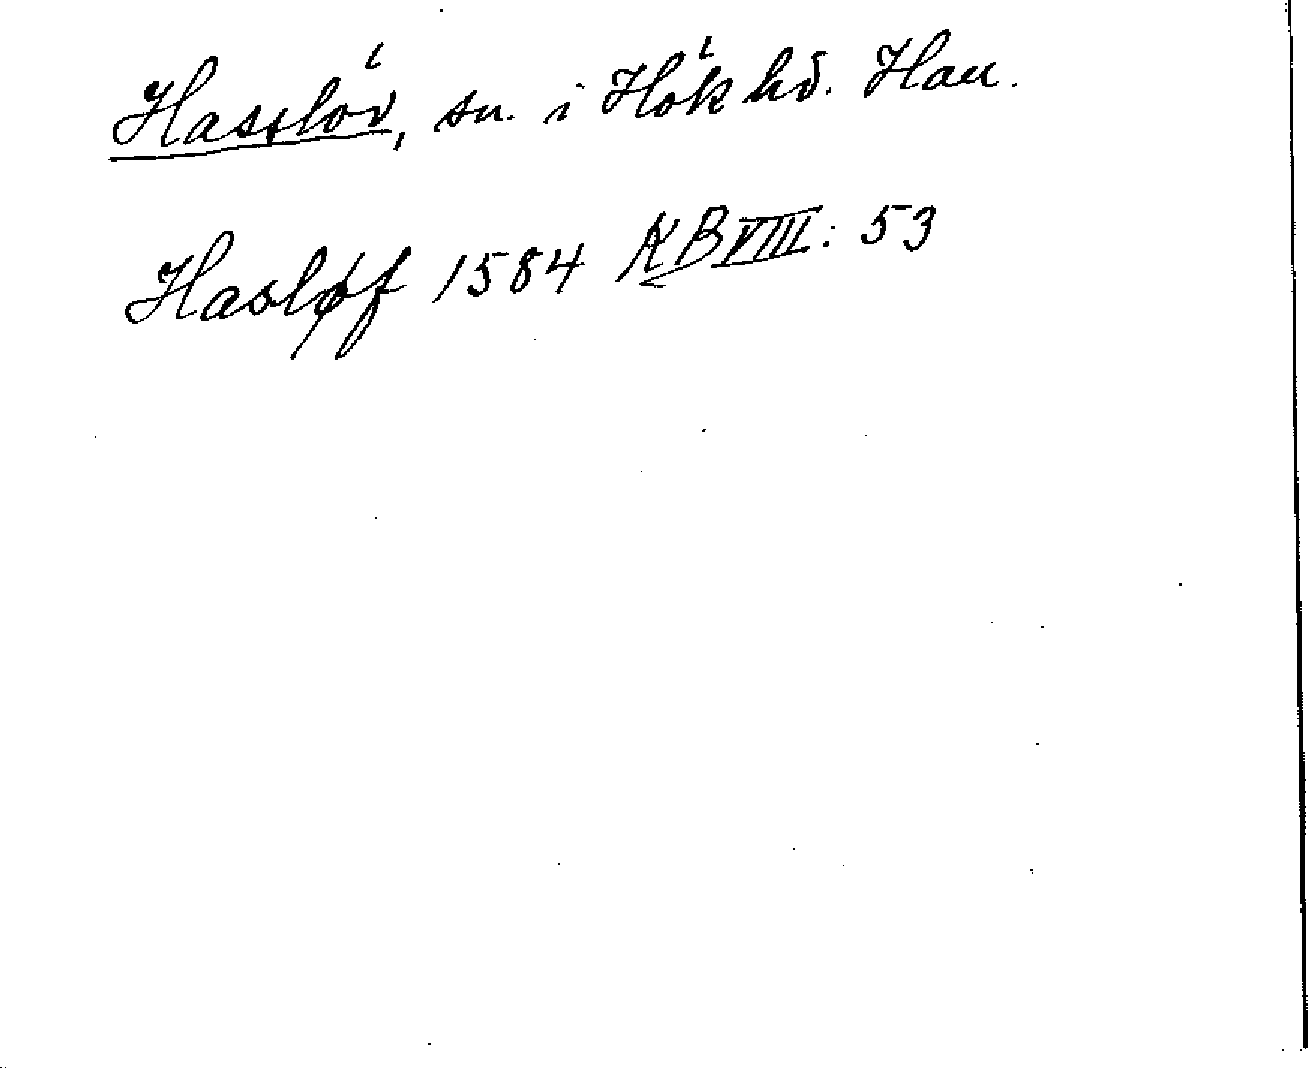 Hasslöv, sn. i Hök hd. Hall.
Hasløf 1584 KB VIII: 53